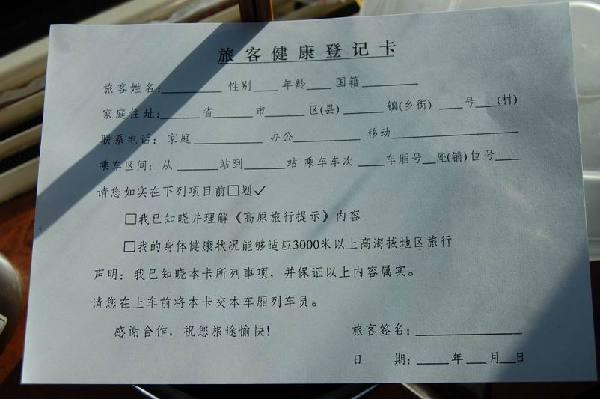 旅客健康登记卡
旅客姓名:________ 性别___年龄___国籍_______
家庭住址:_____省_____市_____区(县)_____镇(乡街)____号___(村)
联系电话: 家庭________ 办公________ 移动______________
乘车区间: 从_____站到_____站 乘车车次____车厢号__座(铺)位号___
请您如实在下列项目前□划✓
□我已知晓并理解《高原旅行提示》内容
□我的身体健康状况能够适应3000米以上高海拔地区旅行
声明: 我已知晓本卡所列事项, 并保证以上内容属实。
请您在上车前将本卡交本车厢列车员。
感谢合作, 祝您旅途愉快! 旅客签名:____________
日 期:____年___月__日